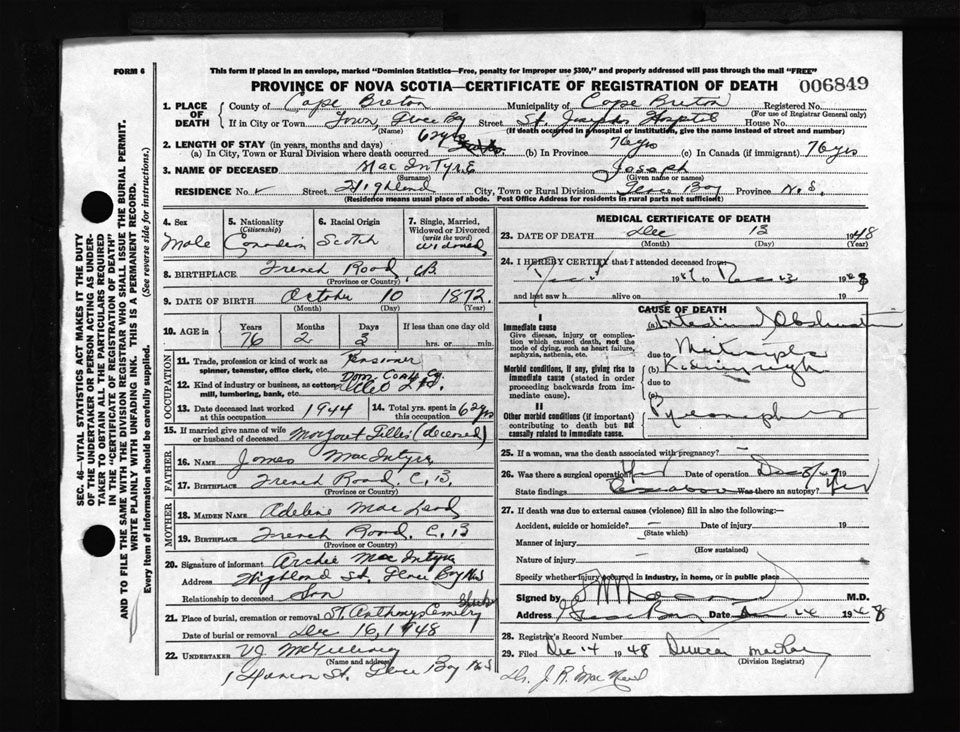 FORM 6
This form if placed in an envelope, marked "Dominion Statistics—Free, penalty for improper use $300," and properly addressed will pass through the mail "FREE"
PROVINCE OF NOVA SCOTIA—CERTIFICATE OF REGISTRATION OF DEATH 006849
1. PLACE OF DEATH
County of Cape Breton Municipality of Cape Breton Registered No.
(For use of Registrar General only)
If in City or Town Town, Glace Bay Street St. Josephs Hospital House No.
(Name) (If death occurred in a hospital or institution, give the name instead of street and number)
2. LENGTH OF STAY (in years, months and days)
(a) In City, Town or Rural Division where death occurred 62 yrs (b) In Province 76 yrs (c) In Canada (if immigrant) 76 yrs
3. NAME OF DECEASED MacIntyre Joseph
(Surname) (Given name or names)
RESIDENCE No. Street Highland City, Town or Rural Division Glace Bay Province N.S.
(Residence means usual place of abode. Post Office Address for residents in rural parts not sufficient)
4. Sex Male
5. Nationality (Citizenship) Canadian
6. Racial Origin Scotch
7. Single, Married, Widowed or Divorced (write the word) Widowed
8. BIRTHPLACE French Road, C.B.
(Province or Country)
9. DATE OF BIRTH October 10 1872
(Month) (Day) (Year)
10. AGE in Years 76 Months 2 Days 3 If less than one day old hrs. or min.
OCCUPATION
11. Trade, profession or kind of work as spinner, teamster, office clerk, etc. Pensioner
12. Kind of industry or business, as cotton mill, lumbering, bank, etc. Dom. Coal Co. Ltd.
13. Date deceased last worked at this occupation 1944
14. Total yrs. spent in this occupation 62 yrs
15. If married give name of wife or husband of deceased Margaret Gillis (deceased)
FATHER
16. NAME James MacIntyre
17. BIRTHPLACE French Road, C.B.
(Province or Country)
MOTHER
18. MAIDEN NAME Adeline Mac Leod
19. BIRTHPLACE French Road, C.B.
(Province or Country)
20. Signature of informant Archie MacIntyre
Address Highland St. Glace Bay NS
Relationship to deceased Son
21. Place of burial, cremation or removal St. Anthonys Cemetry
Date of burial or removal Dec 16, 1948
22. UNDERTAKER VJ McGillivray
(Name and address)
St., Glace Bay N.S
MEDICAL CERTIFICATE OF DEATH
23. DATE OF DEATH Dec 13 1948
(Month) (Day) (Year)
24. I HEREBY CERTIFY that I attended deceased from
19 to 19
and last saw h alive on 19
CAUSE OF DEATH
I
Immediate cause
Give disease, injury or complication which caused death, not the mode of dying, such as heart failure, asphyxia, asthenia, etc.
(a) Intestinal Obstruction
due to
Morbid conditions, if any, giving rise to immediate cause (stated in order proceeding backwards from immediate cause).
(b) Kidney right
due to
(c)
II
Other morbid conditions (if important) contributing to death but not causally related to immediate cause.
25. If a woman, was the death associated with pregnancy?
26. Was there a surgical operation? Yes Date of operation Dec 19
State findings as above Was there an autopsy?
27. If death was due to external causes (violence) fill in also the following:—
Accident, suicide or homicide? Date of injury 19
(State which)
Manner of injury
(How sustained)
Nature of injury
Specify whether injury occurred in industry, in home, or in public place
Signed by M.D.
Address Glace Bay Date 14 1948
28. Registrar's Record Number
29. Filed Dec 14 1948 Duncan
(Division Registrar)
Dr. J. R. Mac Neil
SEC. 46—VITAL STATISTICS ACT MAKES IT THE DUTY
OF THE UNDERTAKER OR PERSON ACTING AS UNDER-
TAKER TO OBTAIN ALL THE PARTICULARS REQUIRED
IN THE "CERTIFICATE OF REGISTRATION OF DEATH"
AND TO FILE THE SAME WITH THE DIVISION REGISTRAR WHO SHALL ISSUE THE BURIAL PERMIT.
WRITE PLAINLY WITH UNFADING INK. THIS IS A PERMANENT RECORD.
Every item of information should be carefully supplied. (See reverse side for instructions.)